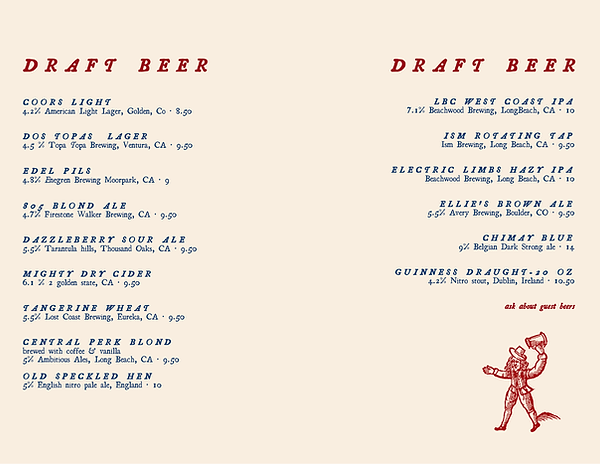 DRAFT BEER
COORS LIGHT
4.2% American Light Lager, Golden, Co · 8.50
DOS TOPAS LAGER
4.5 % Topa Topa Brewing, Ventura, CA · 9.50
EDEL PILS
4.8% Enegren Brewing Moorpark, CA · 9
805 BLOND ALE
4.7% Firestone Walker Brewing, CA · 9.50
DAZZLEBERRY SOUR ALE
5.5% Tarantula hills, Thousand Oaks, CA · 9.50
MIGHTY DRY CIDER
6.1 % 2 golden state, CA · 9.50
TANGERINE WHEAT
5.5% Lost Coast Brewing, Eureka, CA · 9.50
CENTRAL PERK BLOND
brewed with coffee & vanilla
5% Ambitious Ales, Long Beach, CA · 9.50
OLD SPECKLED HEN
5% English nitro pale ale, England · 10
DRAFT BEER
LBC WEST COAST IPA
7.1% Beachwood Brewing, LongBeach, CA · 10
ISM ROTATING TAP
Ism Brewing, Long Beach, CA · 9.50
ELECTRIC LIMBS HAZY IPA
Beachwood Brewing, Long Beach, CA · 10
ELLIE'S BROWN ALE
5.5% Avery Brewing, Boulder, CO · 9.50
CHIMAY BLUE
9% Belgian Dark Strong ale · 14
GUINNESS DRAUGHT-20 OZ
4.2% Nitro stout, Dublin, Ireland · 10.50
ask about guest beers